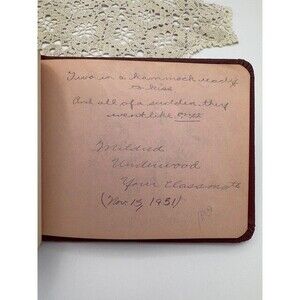 Two in a hammock ready
to kiss
And all of a sudden they
went like
Mildred
Underwood
Your Classmate
(Nov. 13, 1951)